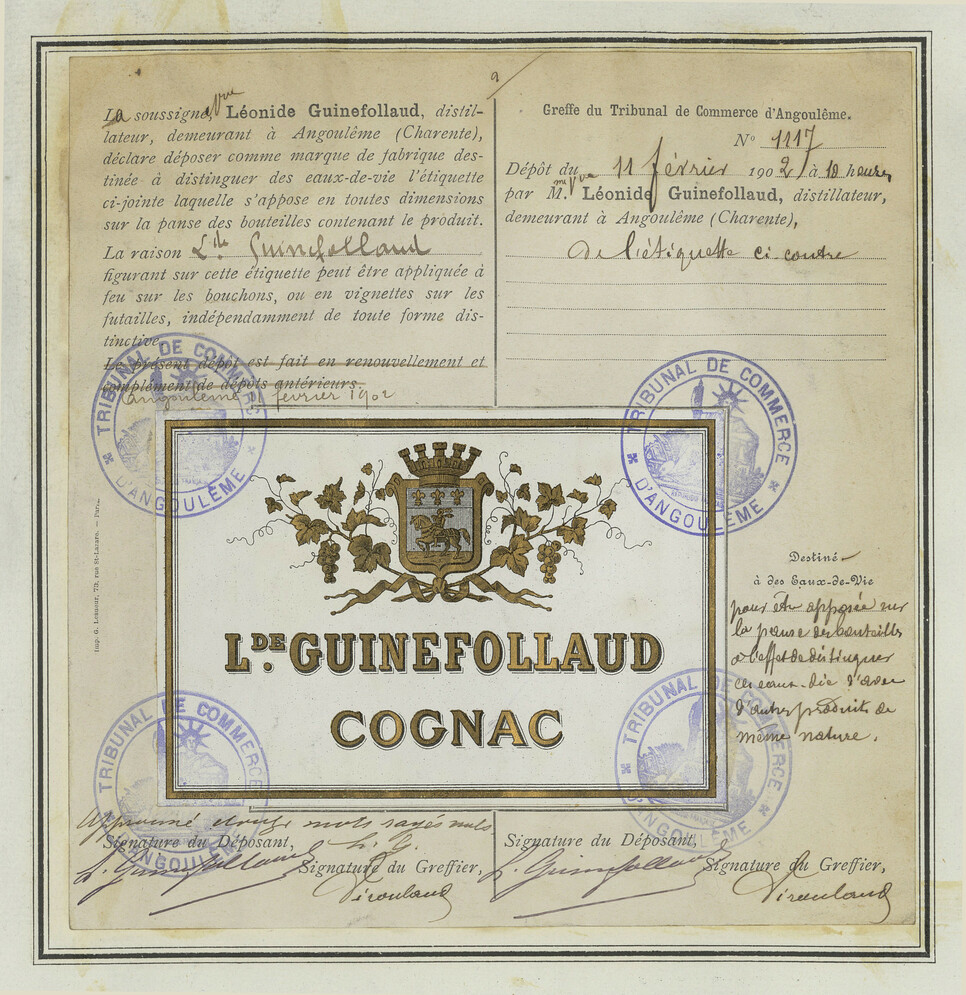 La soussignée Vve Léonide Guinefollaud, distil-
lateur, demeurant à Angoulême (Charente),
déclare déposer comme marque de fabrique des-
tinée à distinguer des eaux-de-vie l'étiquette
ci-jointe laquelle s'appose en toutes dimensions
sur la panse des bouteilles contenant le produit.
La raison L.de Guinefollaud
figurant sur cette étiquette peut être appliquée à
feu sur les bouchons, ou en vignettes sur les
futailles, indépendamment de toute forme dis-
tinctive.
Le présent dépôt est fait en renouvellement et
complément de dépôts antérieurs.
Angoulême février 1902
Greffe du Tribunal de Commerce d'Angoulême.
N° 1117
Dépôt du 11 février 1902 à 10 heures
par M.me Vve Léonide Guinefollaud, distillateur,
demeurant à Angoulême (Charente),
de l'étiquette ci-contre
TRIBUNAL DE COMMERCE D'ANGOULÊME
TRIBUNAL DE COMMERCE D'ANGOULÊME
L.DE GUINEFOLLAUD
COGNAC
Destiné
à des Eaux-de-Vie
pour être apposée sur
la panse des bouteilles
à l'effet de distinguer
ces eaux-de-vie d'avec
d'autres produits de
même nature.
TRIBUNAL DE COMMERCE D'ANGOULÊME
TRIBUNAL DE COMMERCE D'ANGOULÊME
Approuvé douze mots rayés nuls
L. G.
Signature du Déposant,
L. Guinefollaud
Signature du Greffier,
Signature du Déposant,
L. Guinefollaud
Signature du Greffier,